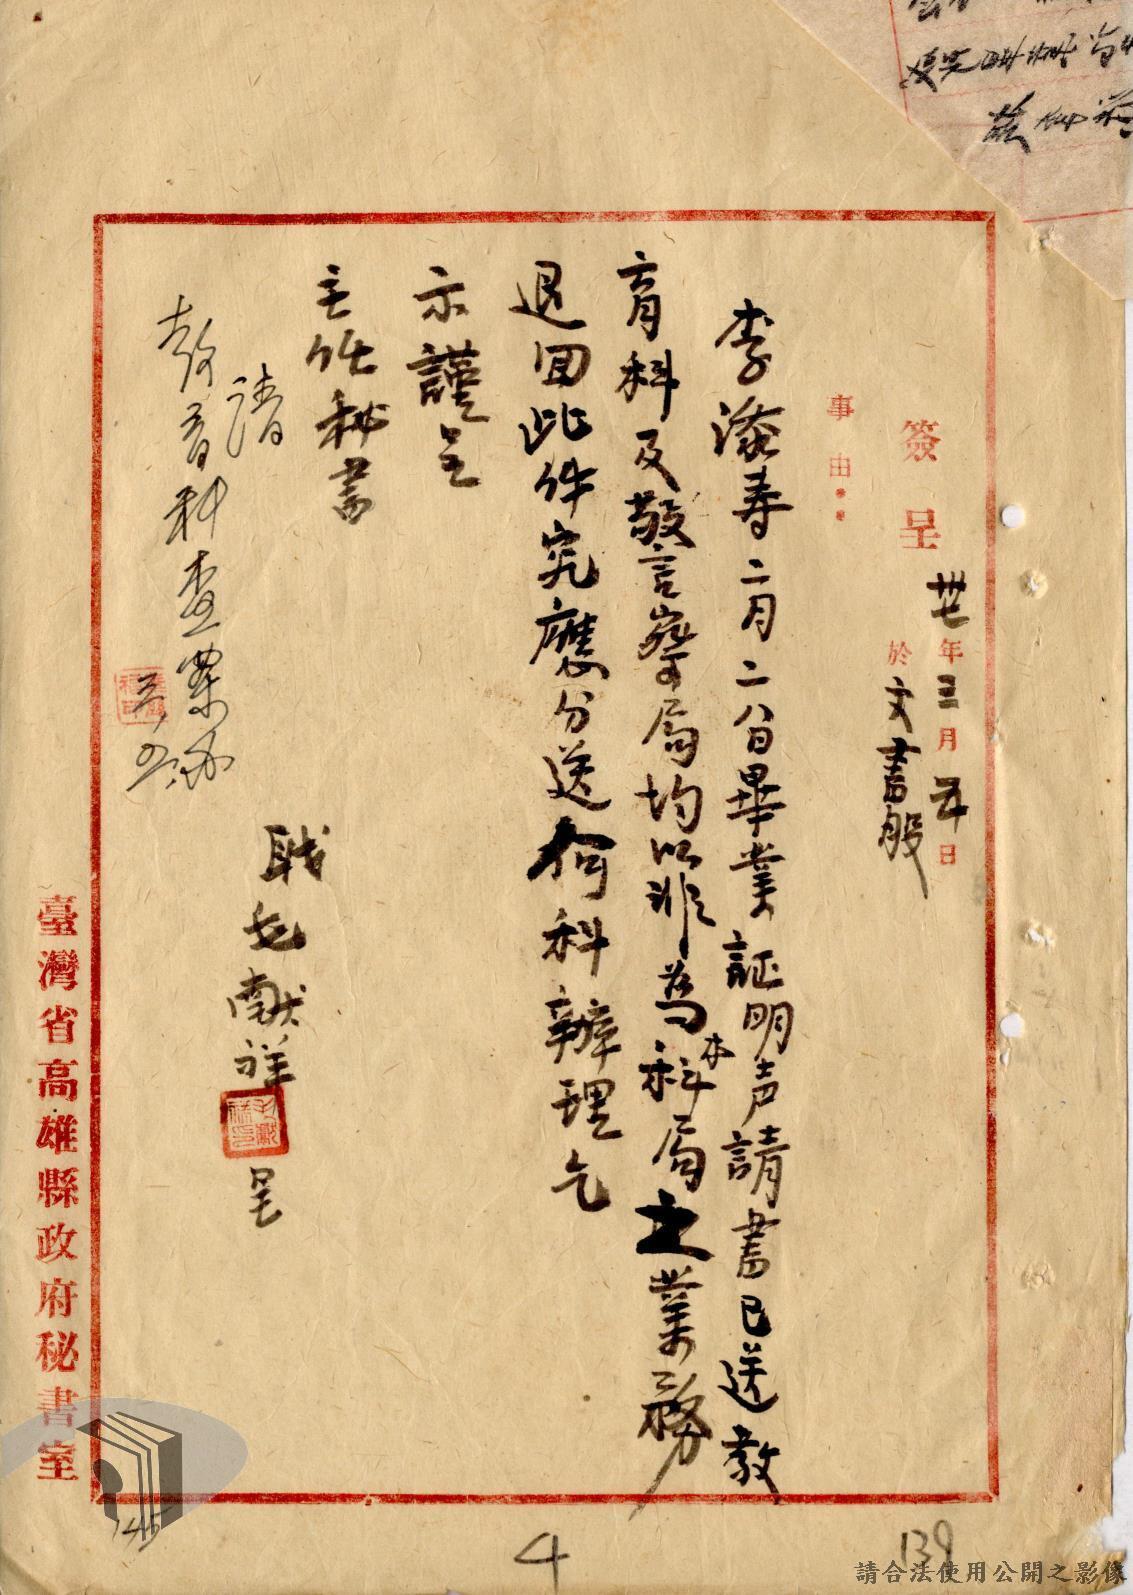 簽呈
卅七年三月五日
於文書股
事由：
李添寿二月二八日畢業証明声請書已送教
育科及警察局均以非為本科局之業務
退回此件究應分送何科辦理乞
示謹呈
主任秘書
請
教育科查案办
三、五
職 献祥 呈
臺灣省高雄縣政府秘書室
145
4
139
請合法使用公開之影像